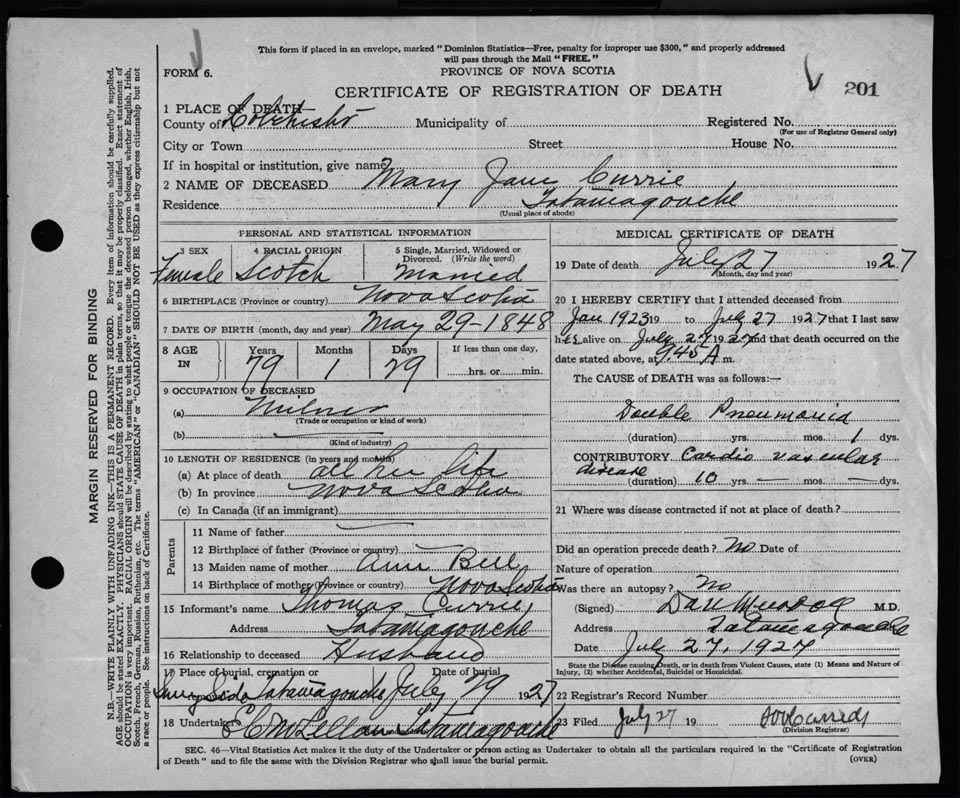 This form if placed in an envelope, marked "Dominion Statistics—Free, penalty for improper use $300," and properly addressed
will pass through the Mail "FREE."
FORM 6.
PROVINCE OF NOVA SCOTIA
201
CERTIFICATE OF REGISTRATION OF DEATH
1 PLACE OF DEATH
County of Municipality of Registered No.
(For use of Registrar General only)
City or Town Street House No.
If in hospital or institution, give name
2 NAME OF DECEASED Mary Jane Currie
Residence Tatamagouche
(Usual place of abode)
PERSONAL AND STATISTICAL INFORMATION
3 SEX 4 RACIAL ORIGIN 5 Single, Married, Widowed or
Divorced. (Write the word)
Female Scotch Married
6 BIRTHPLACE (Province or country) Nova Scotia
7 DATE OF BIRTH (month, day and year) May 29-1848
8 AGE IN Years Months Days If less than one day,
79 1 29 hrs. or min.
9 OCCUPATION OF DECEASED
(a)
(Trade or occupation or kind of work)
(b)
(Kind of industry)
10 LENGTH OF RESIDENCE (in years and months)
(a) At place of death all her life
(b) In province Nova Scotia
(c) In Canada (if an immigrant)
Parents
11 Name of father
12 Birthplace of father (Province or country)
13 Maiden name of mother Ann Bell
14 Birthplace of mother (Province or country) Nova Scotia
15 Informant's name Thomas Currie
Address Tatamagouche
16 Relationship to deceased Husband
17 Place of burial, cremation or Date of burial
Tatamagouche July 29 1927
18 Undertaker Tatamagouche
MEDICAL CERTIFICATE OF DEATH
19 Date of death July 27 1927
(Month, day and year)
20 I HEREBY CERTIFY that I attended deceased from
Jan 1923 19 to July 27 1927 that I last saw
her alive on July 27 1927 and that death occurred on the
date stated above, at 945 A m.
The CAUSE of DEATH was as follows:—
Double Pneumonia
(duration) yrs. mos. 1 dys.
CONTRIBUTORY Cardio vascular
disease
(duration) 10 yrs. — mos. — dys.
21 Where was disease contracted if not at place of death?
Did an operation precede death? no Date of
Nature of operation
Was there an autopsy? No
(Signed) M.D.
Address Tatamagouche
Date July 27, 1927
State the Disease causing Death, or in death from Violent Causes, state (1) Means and Nature of
Injury, (2) whether Accidental, Suicidal or Homicidal.
22 Registrar's Record Number
23 Filed July 27 19
(Division Registrar)
SEC. 46—Vital Statistics Act makes it the duty of the Undertaker or person acting as Undertaker to obtain all the particulars required in the "Certificate of Registration
of Death" and to file the same with the Division Registrar who shall issue the burial permit.
(OVER)
MARGIN RESERVED FOR BINDING
N.B.—WRITE PLAINLY WITH UNFADING INK—THIS IS A PERMANENT RECORD. Every item of information should be carefully supplied.
AGE should be stated EXACTLY. PHYSICIANS should STATE CAUSE OF DEATH in plain terms, so that it may be properly classified. Exact statement of
OCCUPATION is very important. RACIAL ORIGIN will be described by stating to what people or tongue the deceased person belonged, whether English, Irish,
Scotch, French, German, Russian, Ruthenian, etc. The terms "AMERICAN" or "CANADIAN" SHOULD NOT BE USED as they express citizenship but not
a race or people. See instructions on back of Certificate.